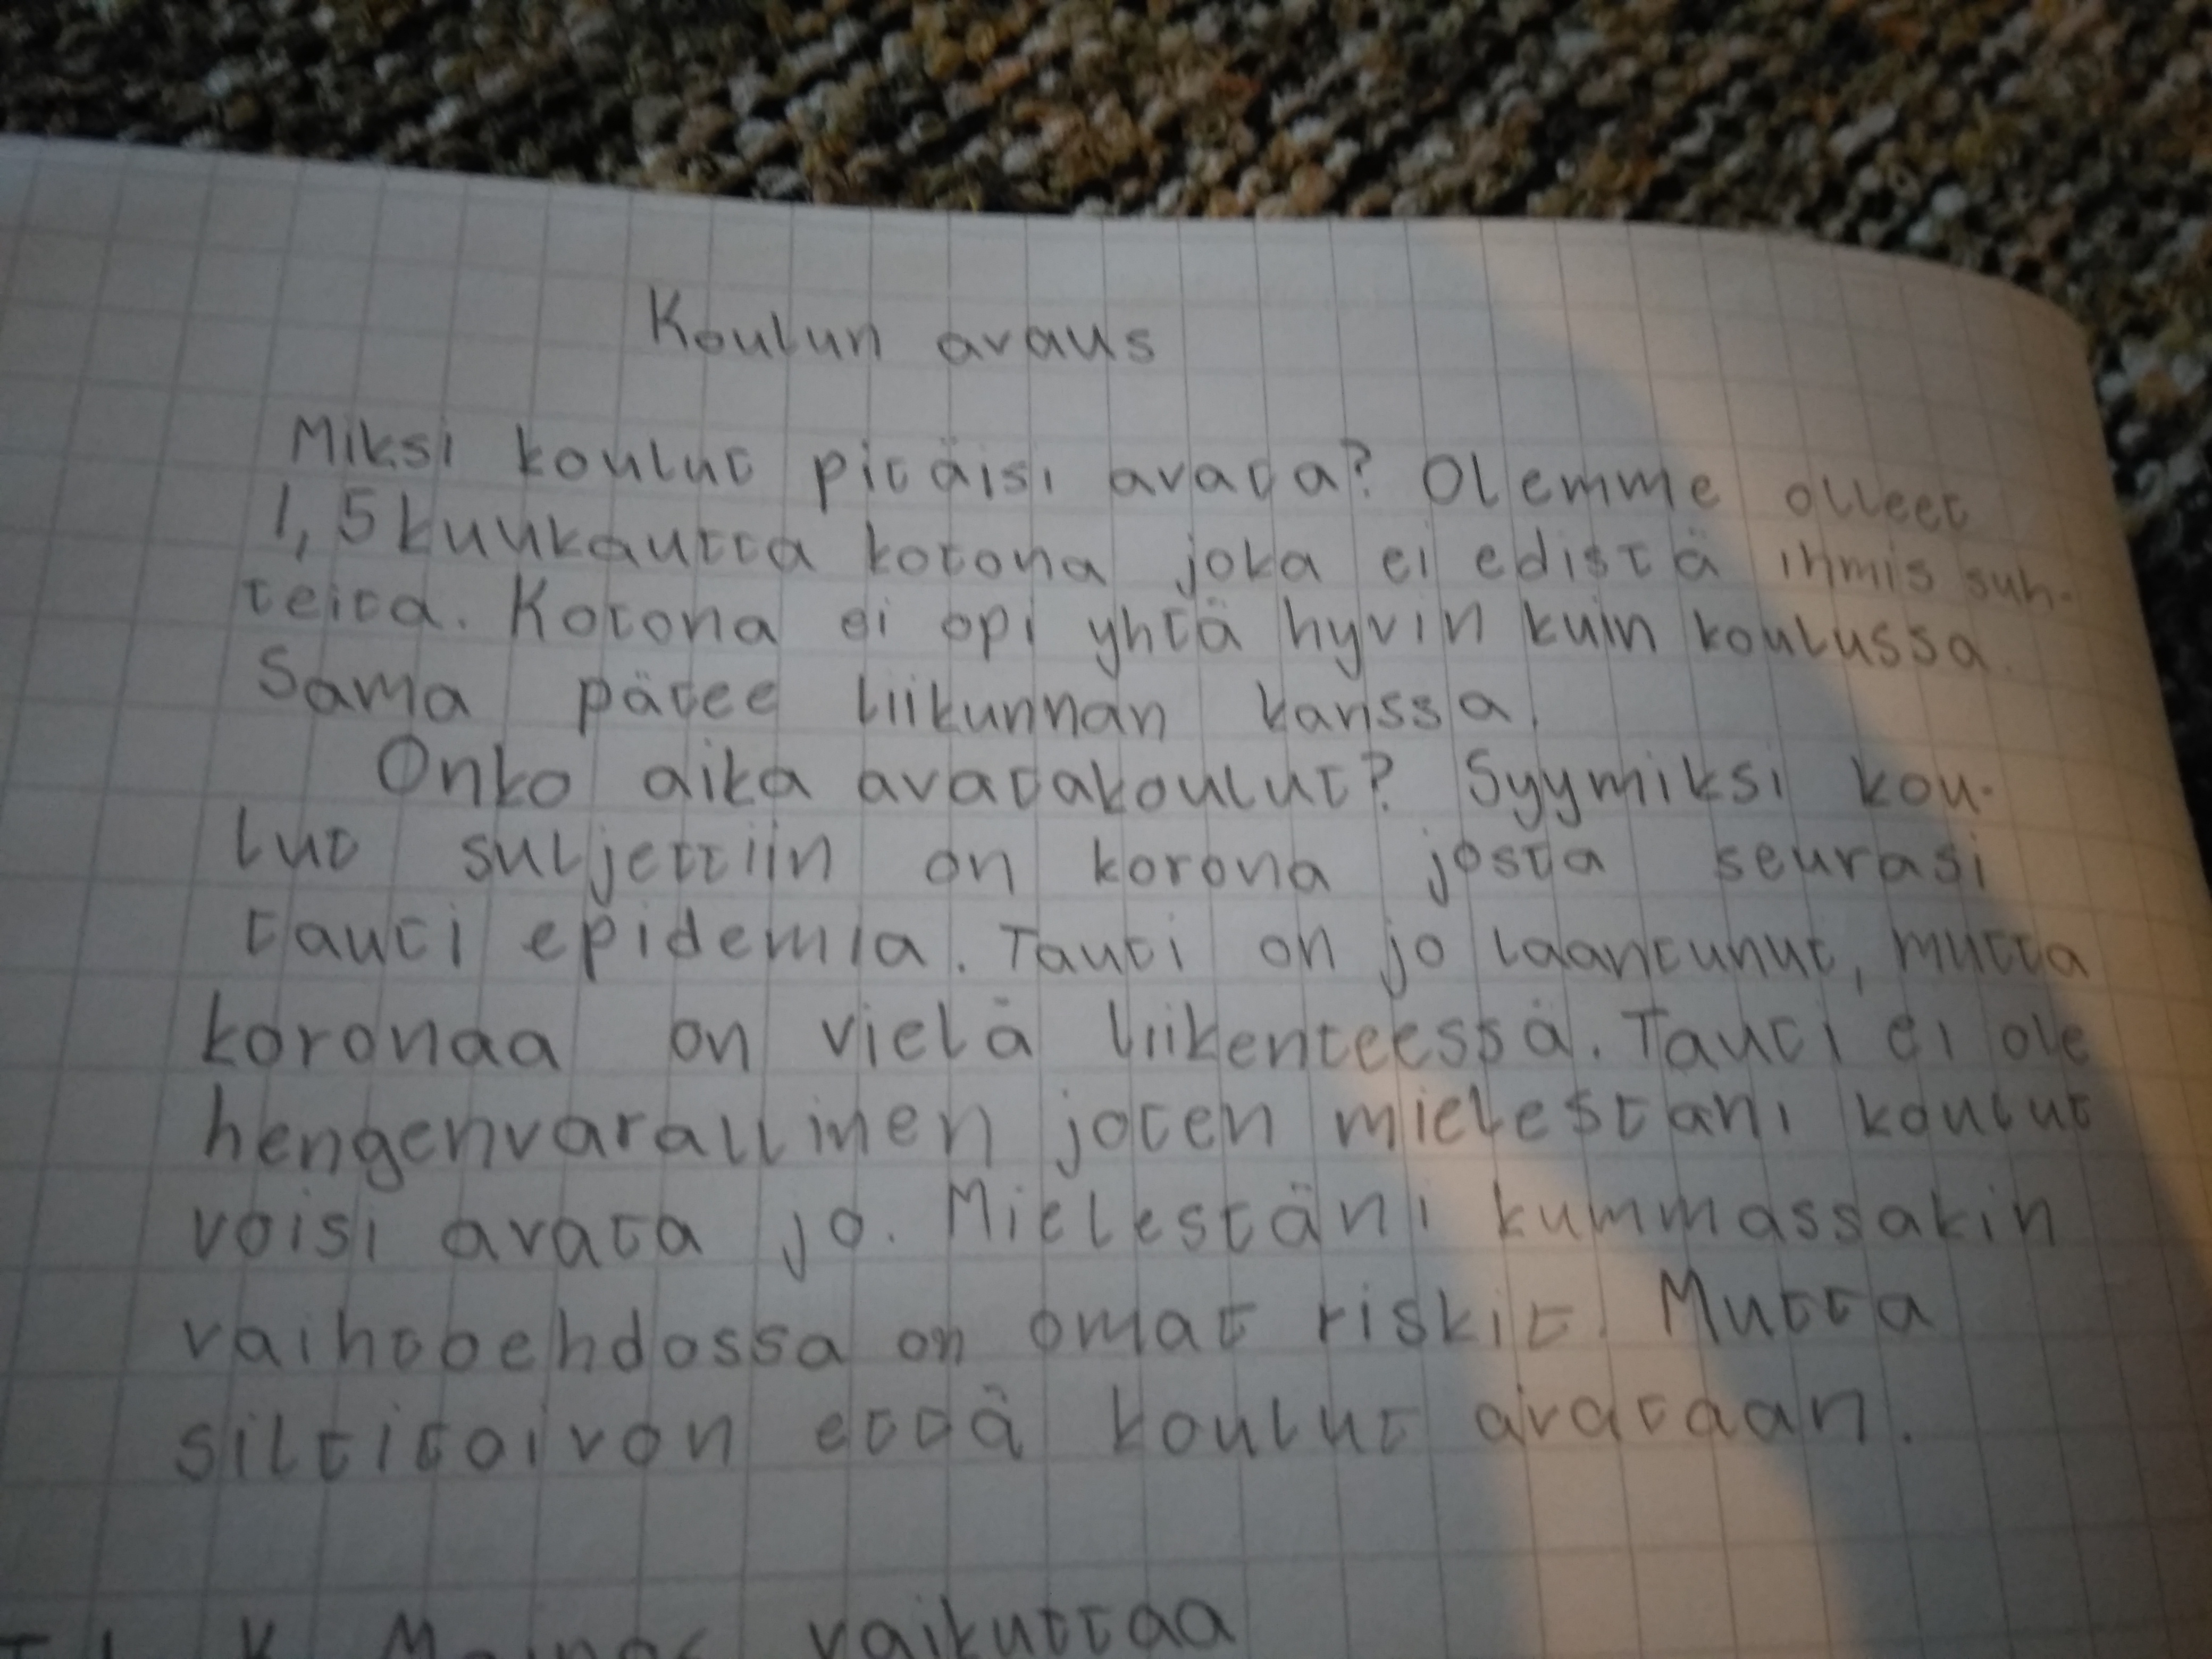 Koulun avaus
Miksi koulut pitäisi avata? Olemme olleet
1,5 kuukautta kotona joka ei edistä ihmis suh-
teita. Kotona ei opi yhtä hyvin kuin koulussa.
Sama pätee liikunnan kanssa.
Onko aika avatakoulut? Syymiksi kou-
lut suljettiin on korona josta seurasi
tauti epidemia. Tauti on jo laantunut, mutta
koronaa on vielä liikenteessä. Tauti ei ole
hengenvarallinen joten mielestani koulut
voisi avata jo. Mielestäni kummassakin
vaihtoehdossa on omat riskit. Mutta
siltitoivon että koulut avataan.
vaikuttaa